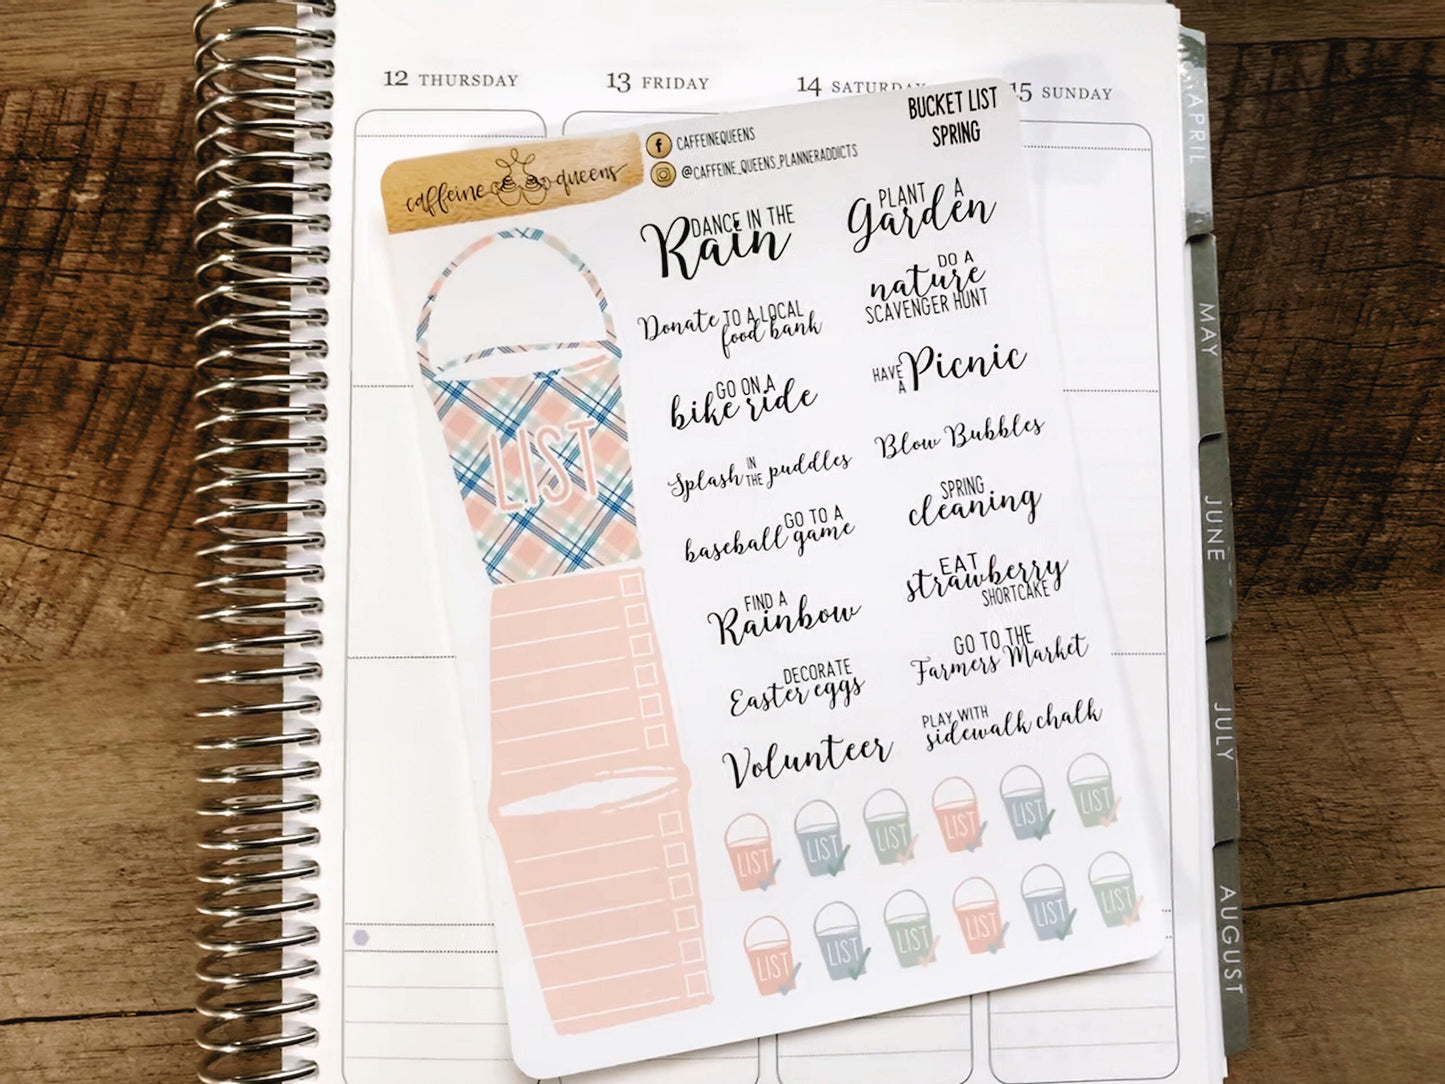 12 THURSDAY
13 FRIDAY
14 SATURDAY
15 SUNDAY
BUCKET LIST
SPRING
caffeine queens
f CAFFEINEQUEENS
@CAFFEINE_QUEENS_PLANNERADDICTS
DANCE IN THE
Rain
PLANT A
Garden
Donate TO A LOCAL
food bank
DO A
nature
SCAVENGER HUNT
GO ON A
bike ride
HAVE
A Picnic
Splash IN
THE puddles
Blow Bubbles
GO TO A
baseball game
SPRING
cleaning
FIND A
Rainbow
EAT
strawberry
SHORTCAKE
DECORATE
Easter eggs
GO TO THE
Farmers Market
Volunteer
PLAY WITH
sidewalk chalk
LIST
LIST LIST LIST LIST LIST LIST
LIST LIST LIST LIST LIST LIST
APRIL
MAY
JUNE
JULY
AUGUST